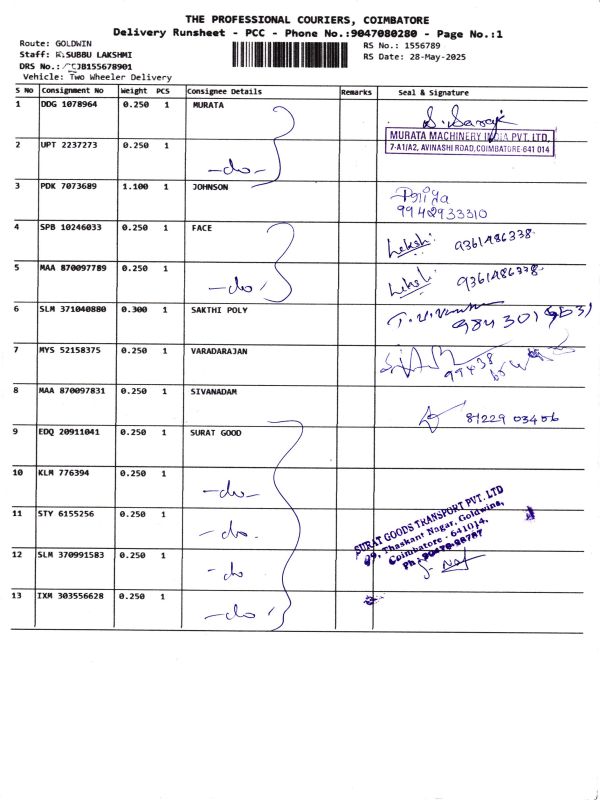 THE PROFESSIONAL COURIERS, COIMBATORE
Delivery Runsheet - PCC - Phone No.:9047080280 - Page No.:1
Route: GOLDWIN
Staff: K.SUBBU LAKSHMI
DRS No.: JB155678901
Vehicle: Two Wheeler Delivery
RS No.: 1556789
RS Date: 28-May-2025
S No Consignment No Weight PCS Consignee Details Remarks Seal & Signature
1 DDG 1078964 0.250 1 MURATA
S. Saroj
MURATA MACHINERY INDIA PVT. LTD,
7-A1/A2, AVINASHI ROAD, COIMBATORE-641 014
2 UPT 2237273 0.250 1 -do-
3 PDK 7073689 1.100 1 JOHNSON Priya
9942933310
4 SPB 10246033 0.250 1 FACE 9361486338.
5 MAA 870097789 0.250 1 -do- 9361486338.
6 SLM 371040880 0.300 1 SAKTHI POLY
7 MYS 52158375 0.250 1 VARADARAJAN
99438
8 MAA 870097831 0.250 1 SIVANADAM 81229 03406
9 EDQ 20911041 0.250 1 SURAT GOOD
10 KLM 776394 0.250 1 -do-
11 STY 6155256 0.250 1 -do-
SURAT GOODS TRANSPORT PVT. LTD
Thaskant Nagar, Goldwins,
Coimbatore - 641014,
12 SLM 370991583 0.250 1 -do
13 IXM 303556628 0.250 1 -do-